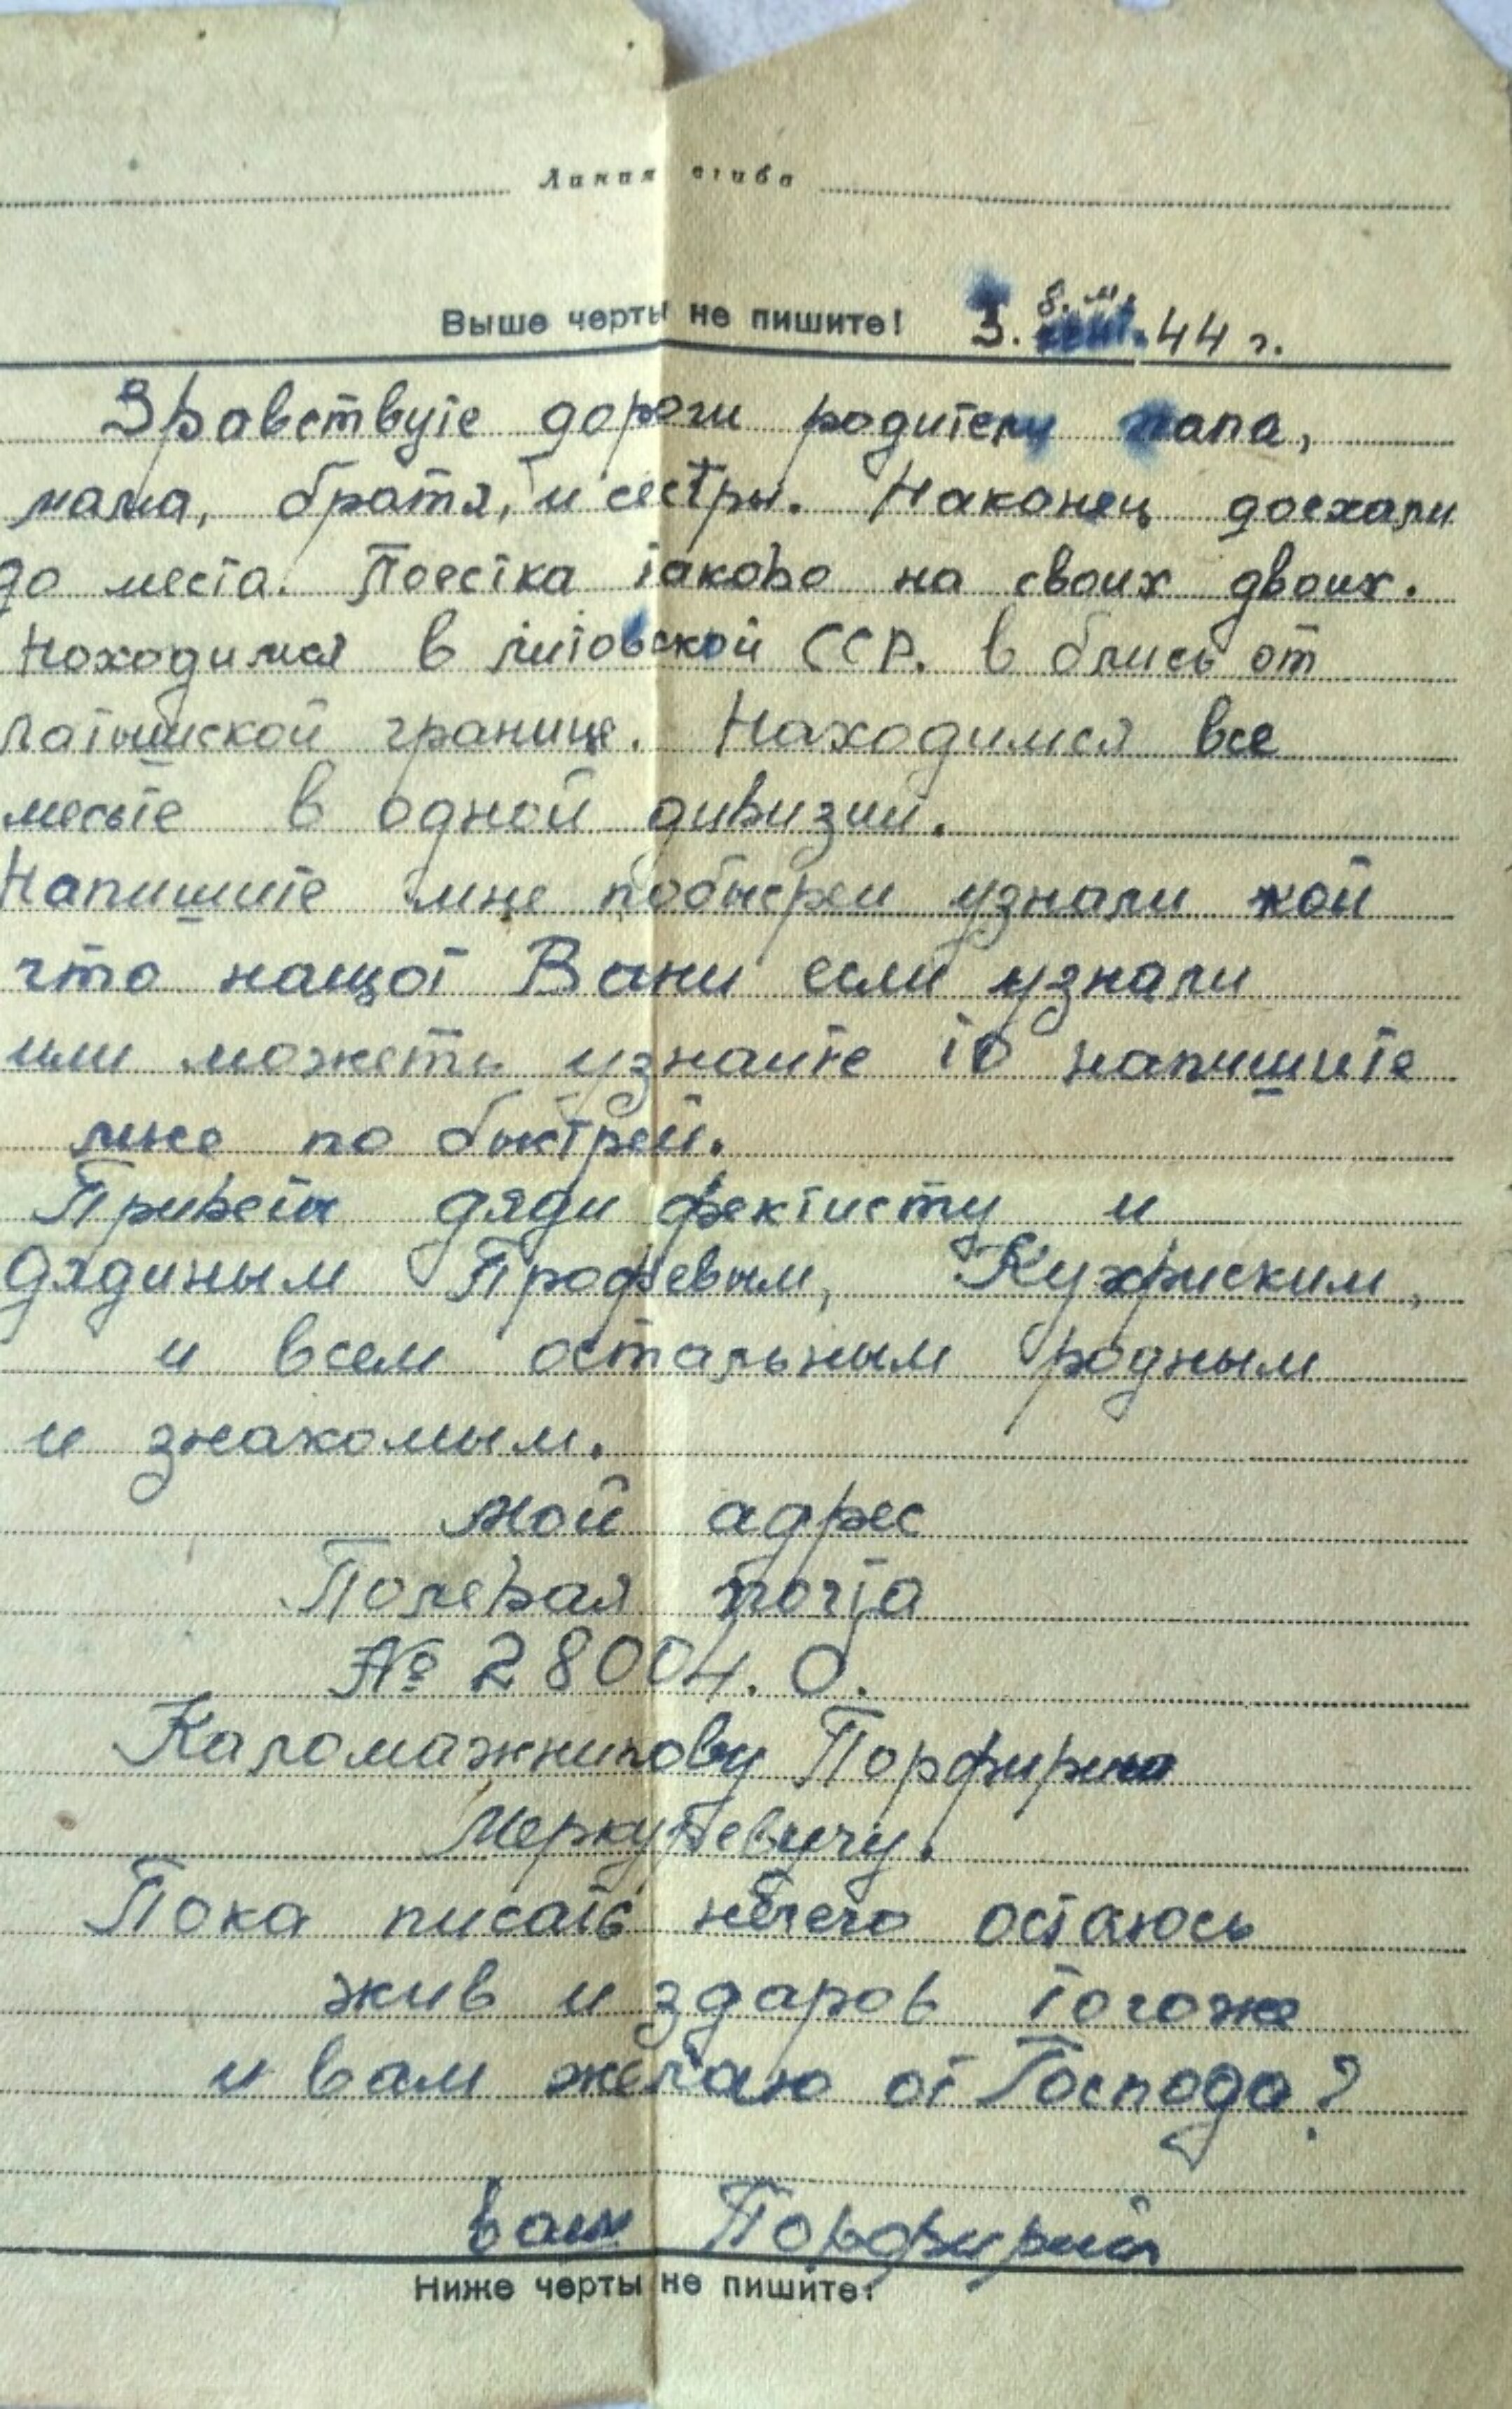 Линия сгиба
Выше черты не пишите! 3. 8. м. 44 г.
Зравствуте дороги родители папа,
мама, братя, и сестры. Наконец доехали
до места. Поестка такова на своих двоих.
Находимся в литовской ССР. в блись от
латышской границе. Находимся все
месьте в одной дивизии.
Напишите мне побысреи узнали кой
что нащот Вани если узнали
или можеть узнаите то напишите
мне по быстрей.
Привет дяди фектисту и
дядиным Профевым,
и всем остальным родным
и знакомым.
мой адрес
Полевая почта
№ 28004. О.
Каломажникову Порфирию
Меркулевичу.
Пока писать нечего остаюсь
жив и здаров тогоже
и вам желаю от Господа?
ваш Порфирий
Ниже черты не пишите!